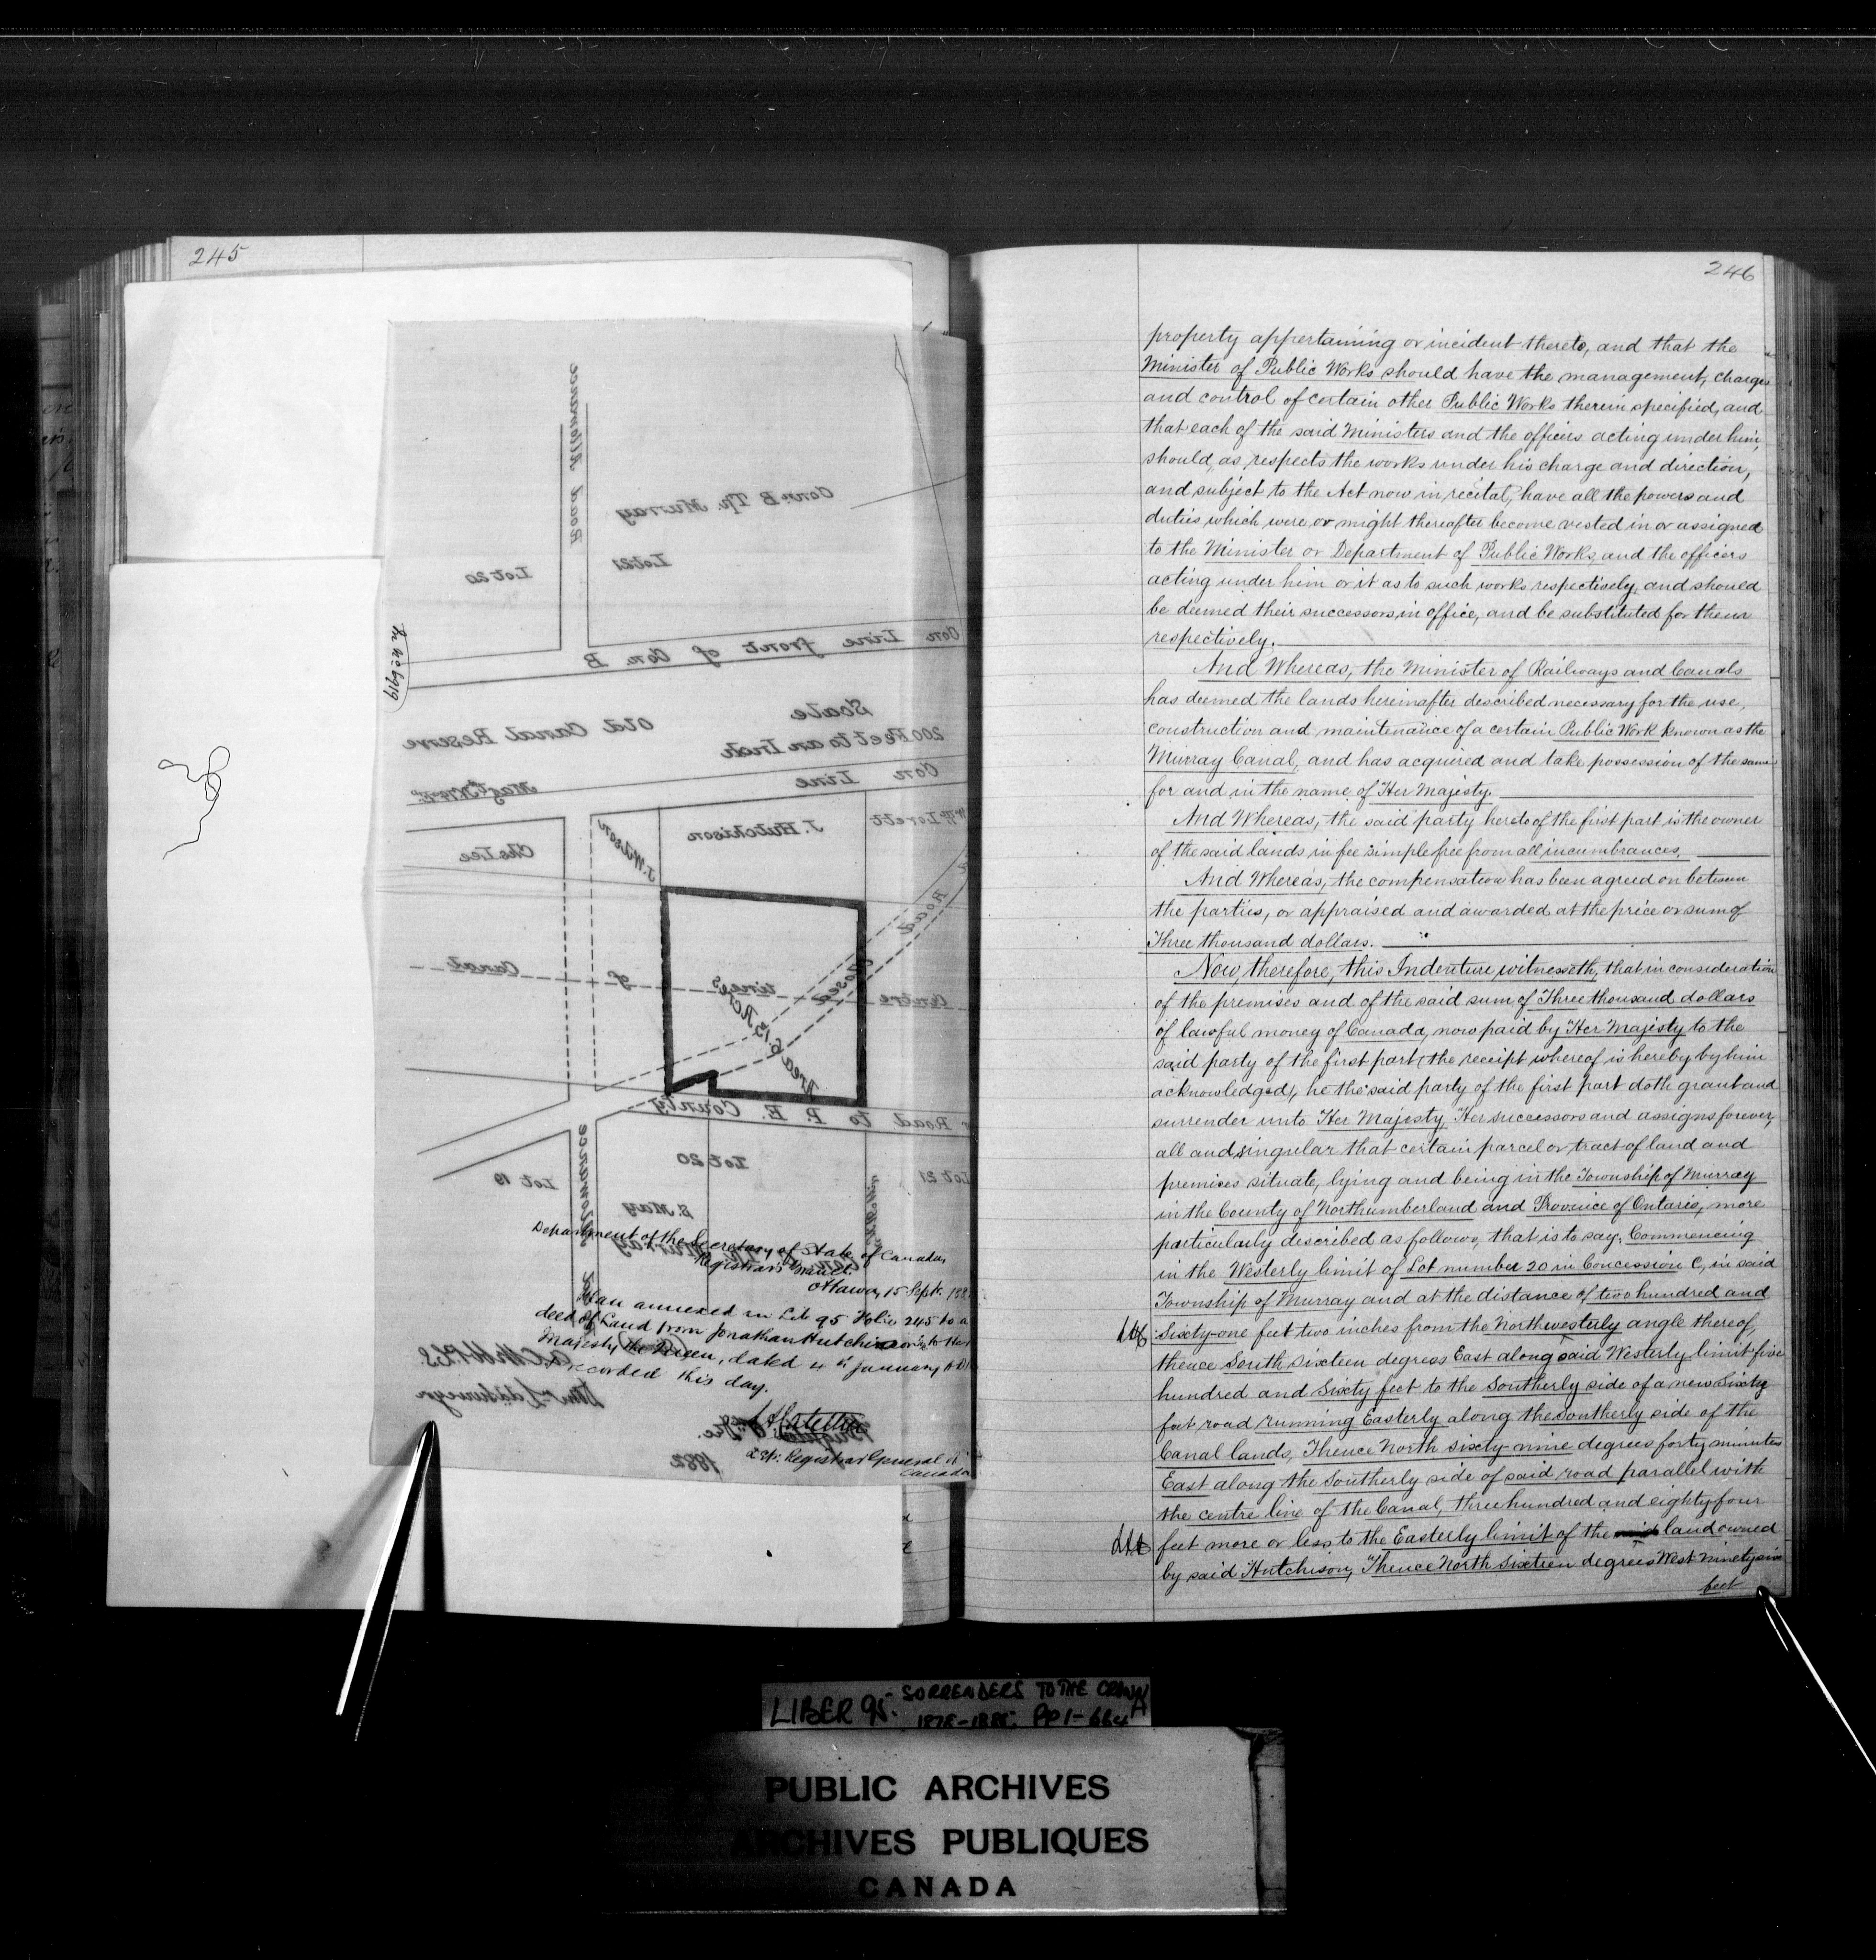 245
Road Allowance
Con. B Tp. Murray
Lot 20
Lot 21
Con Line front of Con. B
Scale
200 Feet to an Inch
Old Canal Reserve
Con Line
Chs Lee
J. Hutchison
Road
Centre line of Canal
Road to P. E. County
Lot 19
Lot 20
Lot 21
S. May
Allowance
Department of the Secretary of State of Canada,
Registrar's Branch.
Ottawa, 15 Sept. 188
Plan annexed in Lib 95 Folio 245 to a
deed of Land from Jonathan Hutchinson to Her
Majesty the Queen, dated 4th January A.D.
recorded this day.
Dep. Registrar General of
Canada
1882
246
property appertaining or incident thereto, and that the
Minister of Public Works should have the management, charges
and control of certain other Public Works therein specified, and
that each of the said Ministers and the officers acting under him,
should, as respects the works under his charge and direction,
and subject to the Act now in recital, have all the powers and
duties which were or might thereafter become vested in or assigned
to the Minister or Department of Public Works, and the officers
acting under him or it as to such works respectively, and should
be deemed their successors in office, and be substituted for them
respectively.
And Whereas, the Minister of Railways and Canals
has deemed the lands hereinafter described necessary for the use,
construction and maintenance of a certain Public Work known as the
Murray Canal, and has acquired and take possession of the same
for and in the name of Her Majesty.
And Whereas, the said party hereto of the first part is the owner
of the said lands in fee simple free from all incumbrances,
And Whereas, the compensation has been agreed on between
the parties, or appraised and awarded at the price or sum of
Three thousand dollars.
Now, therefore, this Indenture witnesseth, that in consideration
of the premises and of the said sum of Three thousand dollars
of lawful money of Canada, now paid by Her Majesty to the
said party of the first part (the receipt whereof is hereby by him
acknowledged), he the said party of the first part doth grant and
surrender unto Her Majesty, Her successors and assigns forever,
all and singular that certain parcel or tract of land and
premises situate, lying and being in the Township of Murray
in the County of Northumberland and Province of Ontario, more
particularly described as follows, that is to say: Commencing
in the Westerly limit of Lot number 20 in Concession C, in said
Township of Murray and at the distance of two hundred and
Sixty-one feet two inches from the Northwesterly angle thereof,
thence South sixteen degrees East along said Westerly limit five
hundred and Sixty feet to the Southerly side of a new Sixty
feet road running Easterly along the Southerly side of the
Canal lands, Thence North sixty-nine degrees forty minutes
East along the Southerly side of said road parallel with
the centre line of the Canal, three hundred and eighty four
feet more or less to the Easterly limit of the land owned
by said Hutchison, Thence North Sixteen degrees West Ninety six
feet
LIBER 95. SURRENDERS TO THE CROWN
PUBLIC ARCHIVES
ARCHIVES PUBLIQUES
CANADA